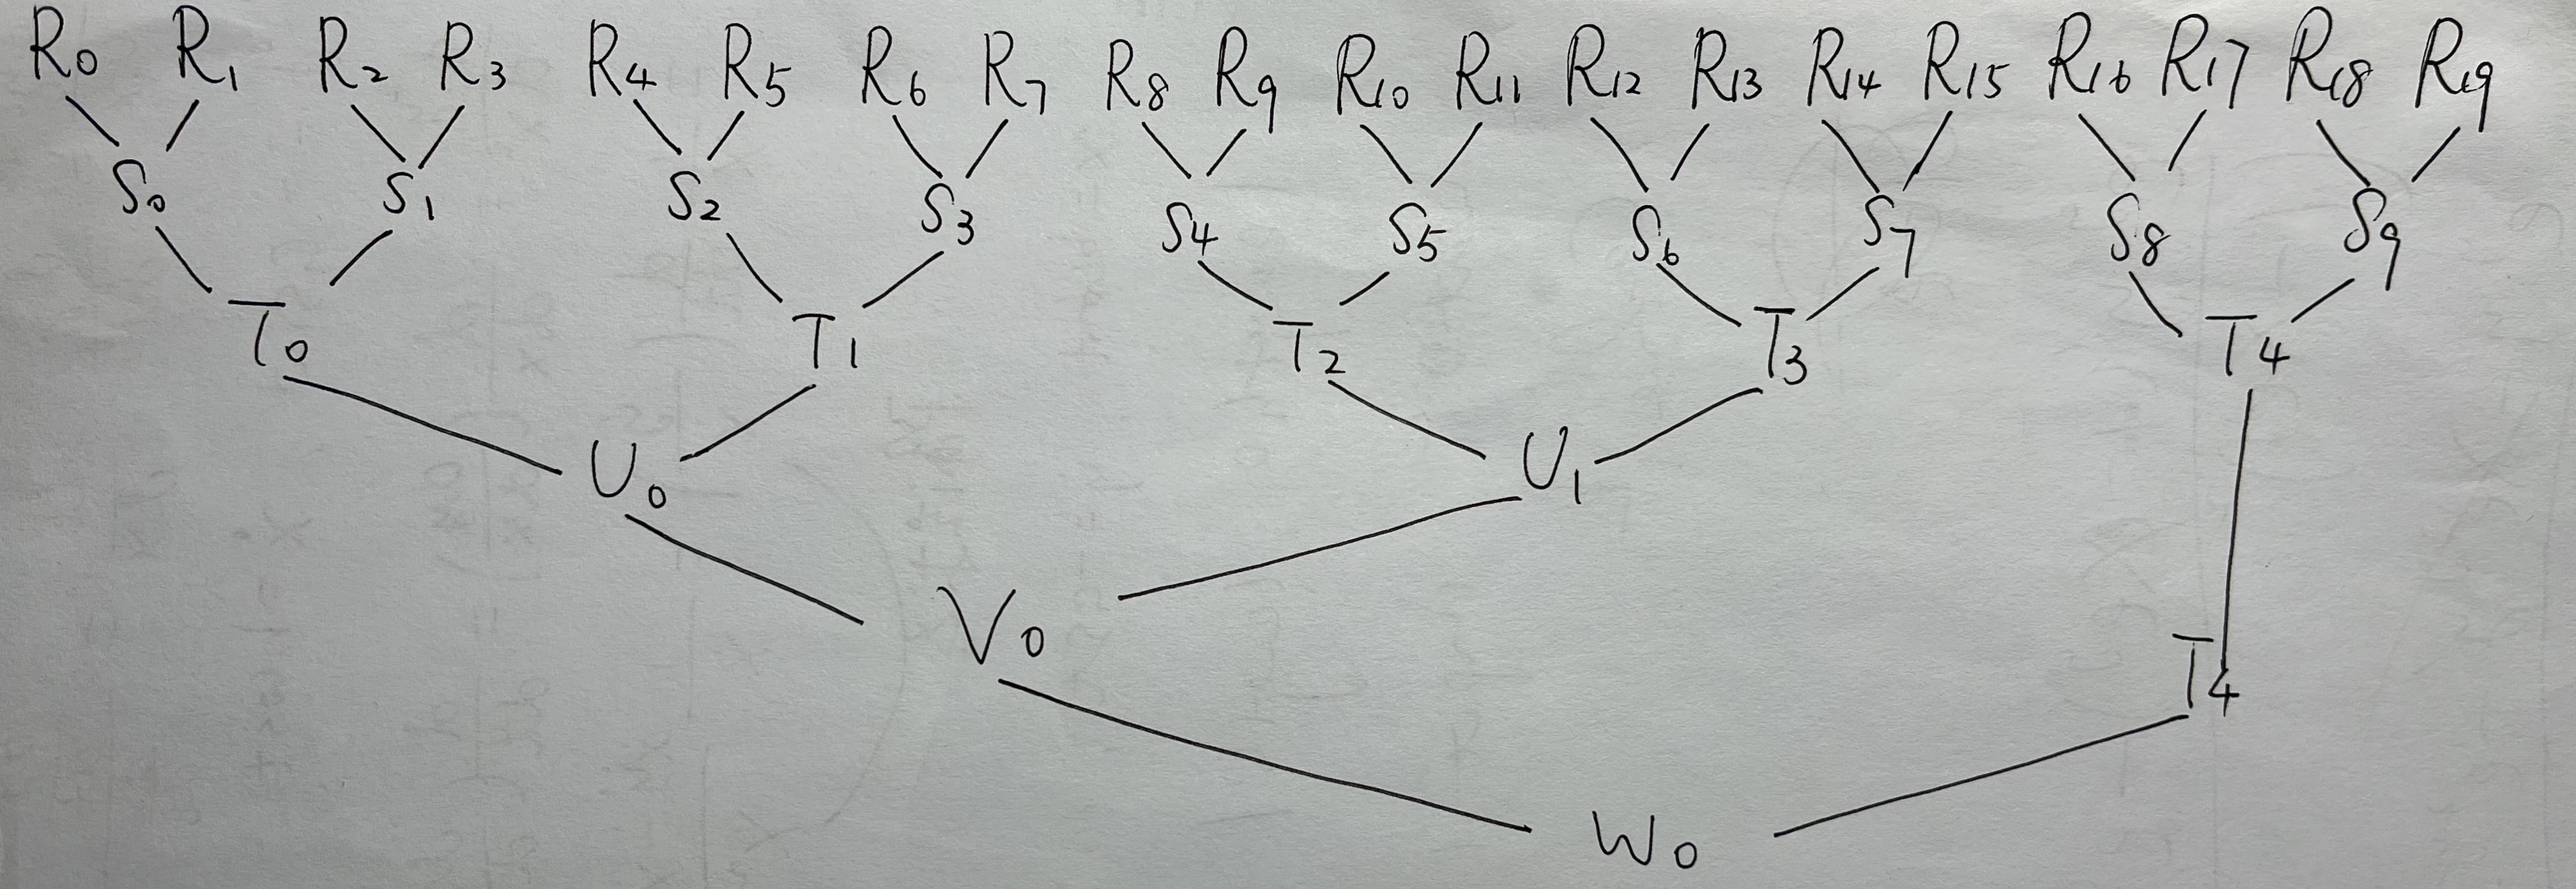 R0 R1 R2 R3 R4 R5 R6 R7 R8 R9 R10 R11 R12 R13 R14 R15 R16 R17 R18 R19
S0 S1 S2 S3 S4 S5 S6 S7 S8 S9
T0 T1 T2 T3 T4
U0 U1
V0 T4
W0